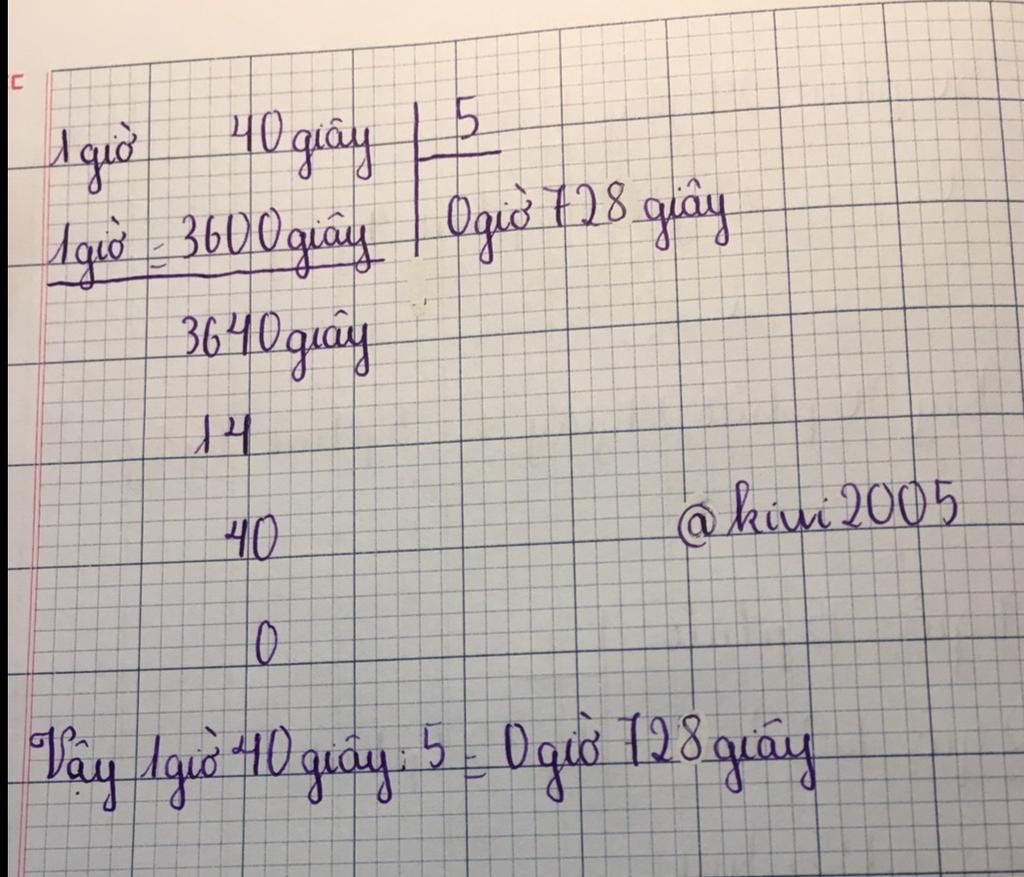 1 giờ 40 giây 5
1 giờ = 3600 giây 0 giờ 728 giây
3640 giây
14
40
0
@kiwi2005
Vậy 1 giờ 40 giây : 5 = 0 giờ 728 giây